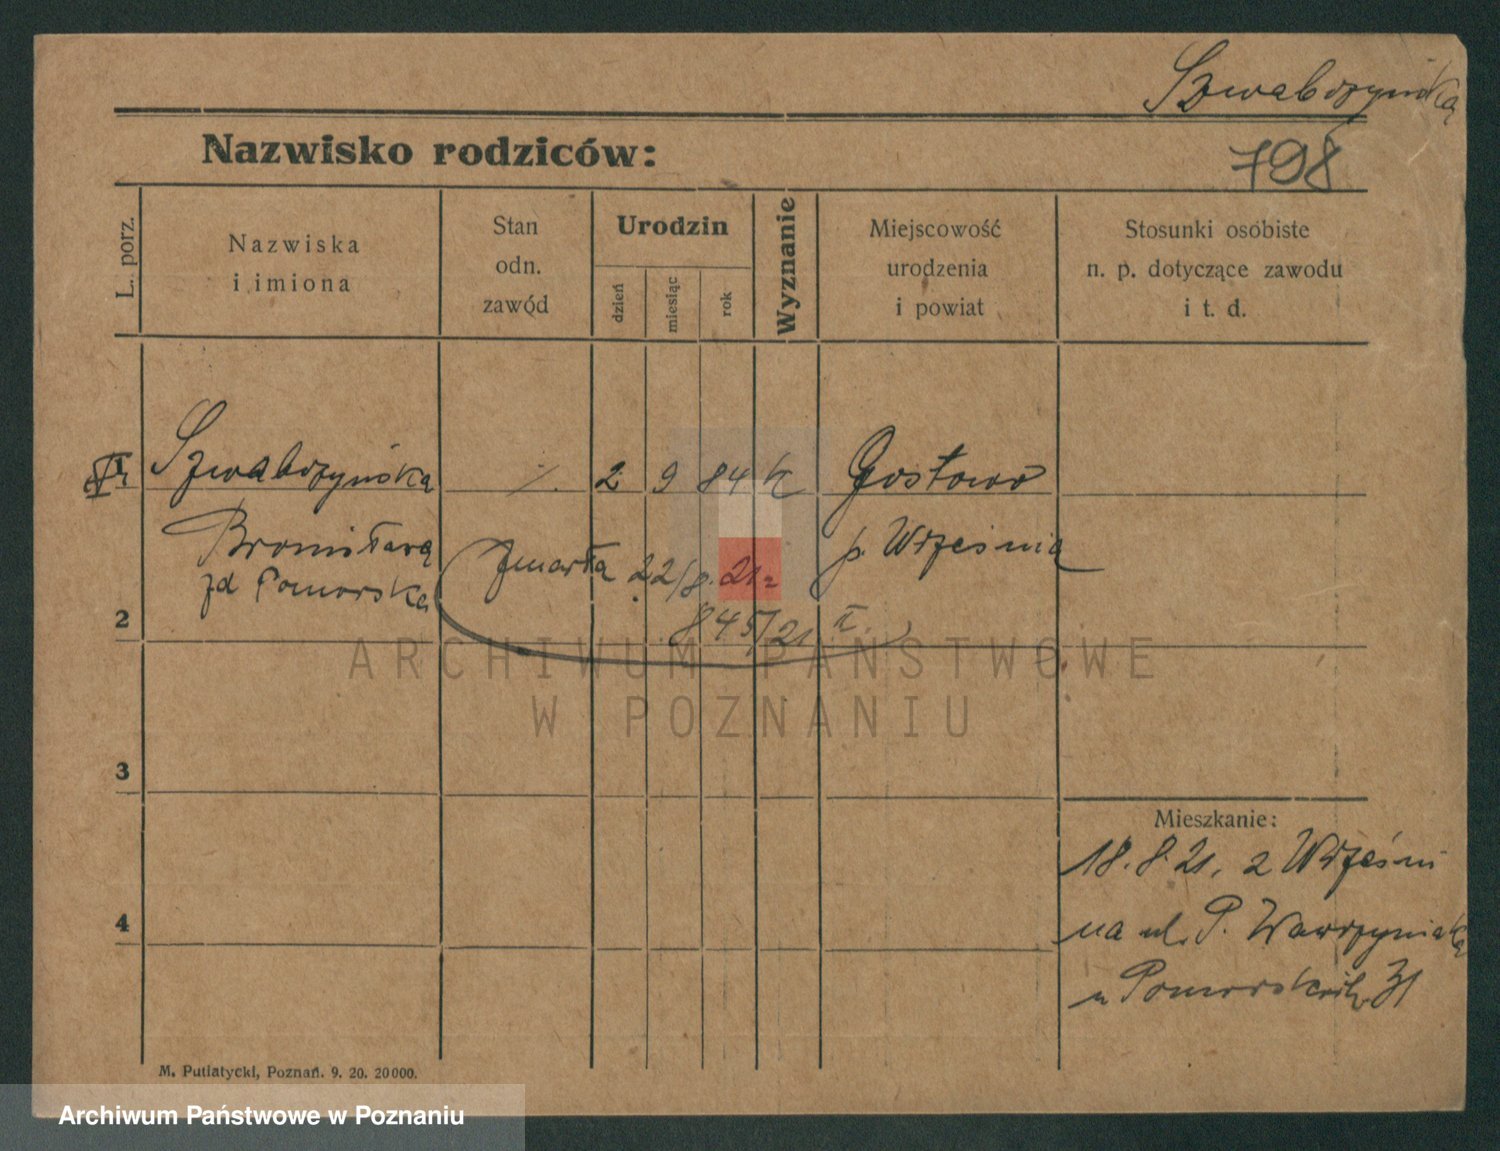 Szwabrzyńska
Nazwisko rodziców:
798
L. porz.
Nazwiska
i imiona
Stan
odn.
zawód
Urodzin
dzień
miesiąc
rok
Wyznanie
Miejscowość
urodzenia
i powiat
Stosunki osobiste
n. p. dotyczące zawodu
i t. d.
1
Szwabrzyńska
2 9 84 k
Bronisława
zd Pomorska
p. Września
zmarła 22/8. 21
845/21 II.
2
ARCHIWUM PAŃSTWOWE
W POZNANIU
3
Mieszkanie:
18. 8. 21. z Wrześni
na ul. P. Wawrzyniaka
u Pomorskich 31
4
M. Putiatycki, Poznań. 9. 20. 20000.
Archiwum Państwowe w Poznaniu